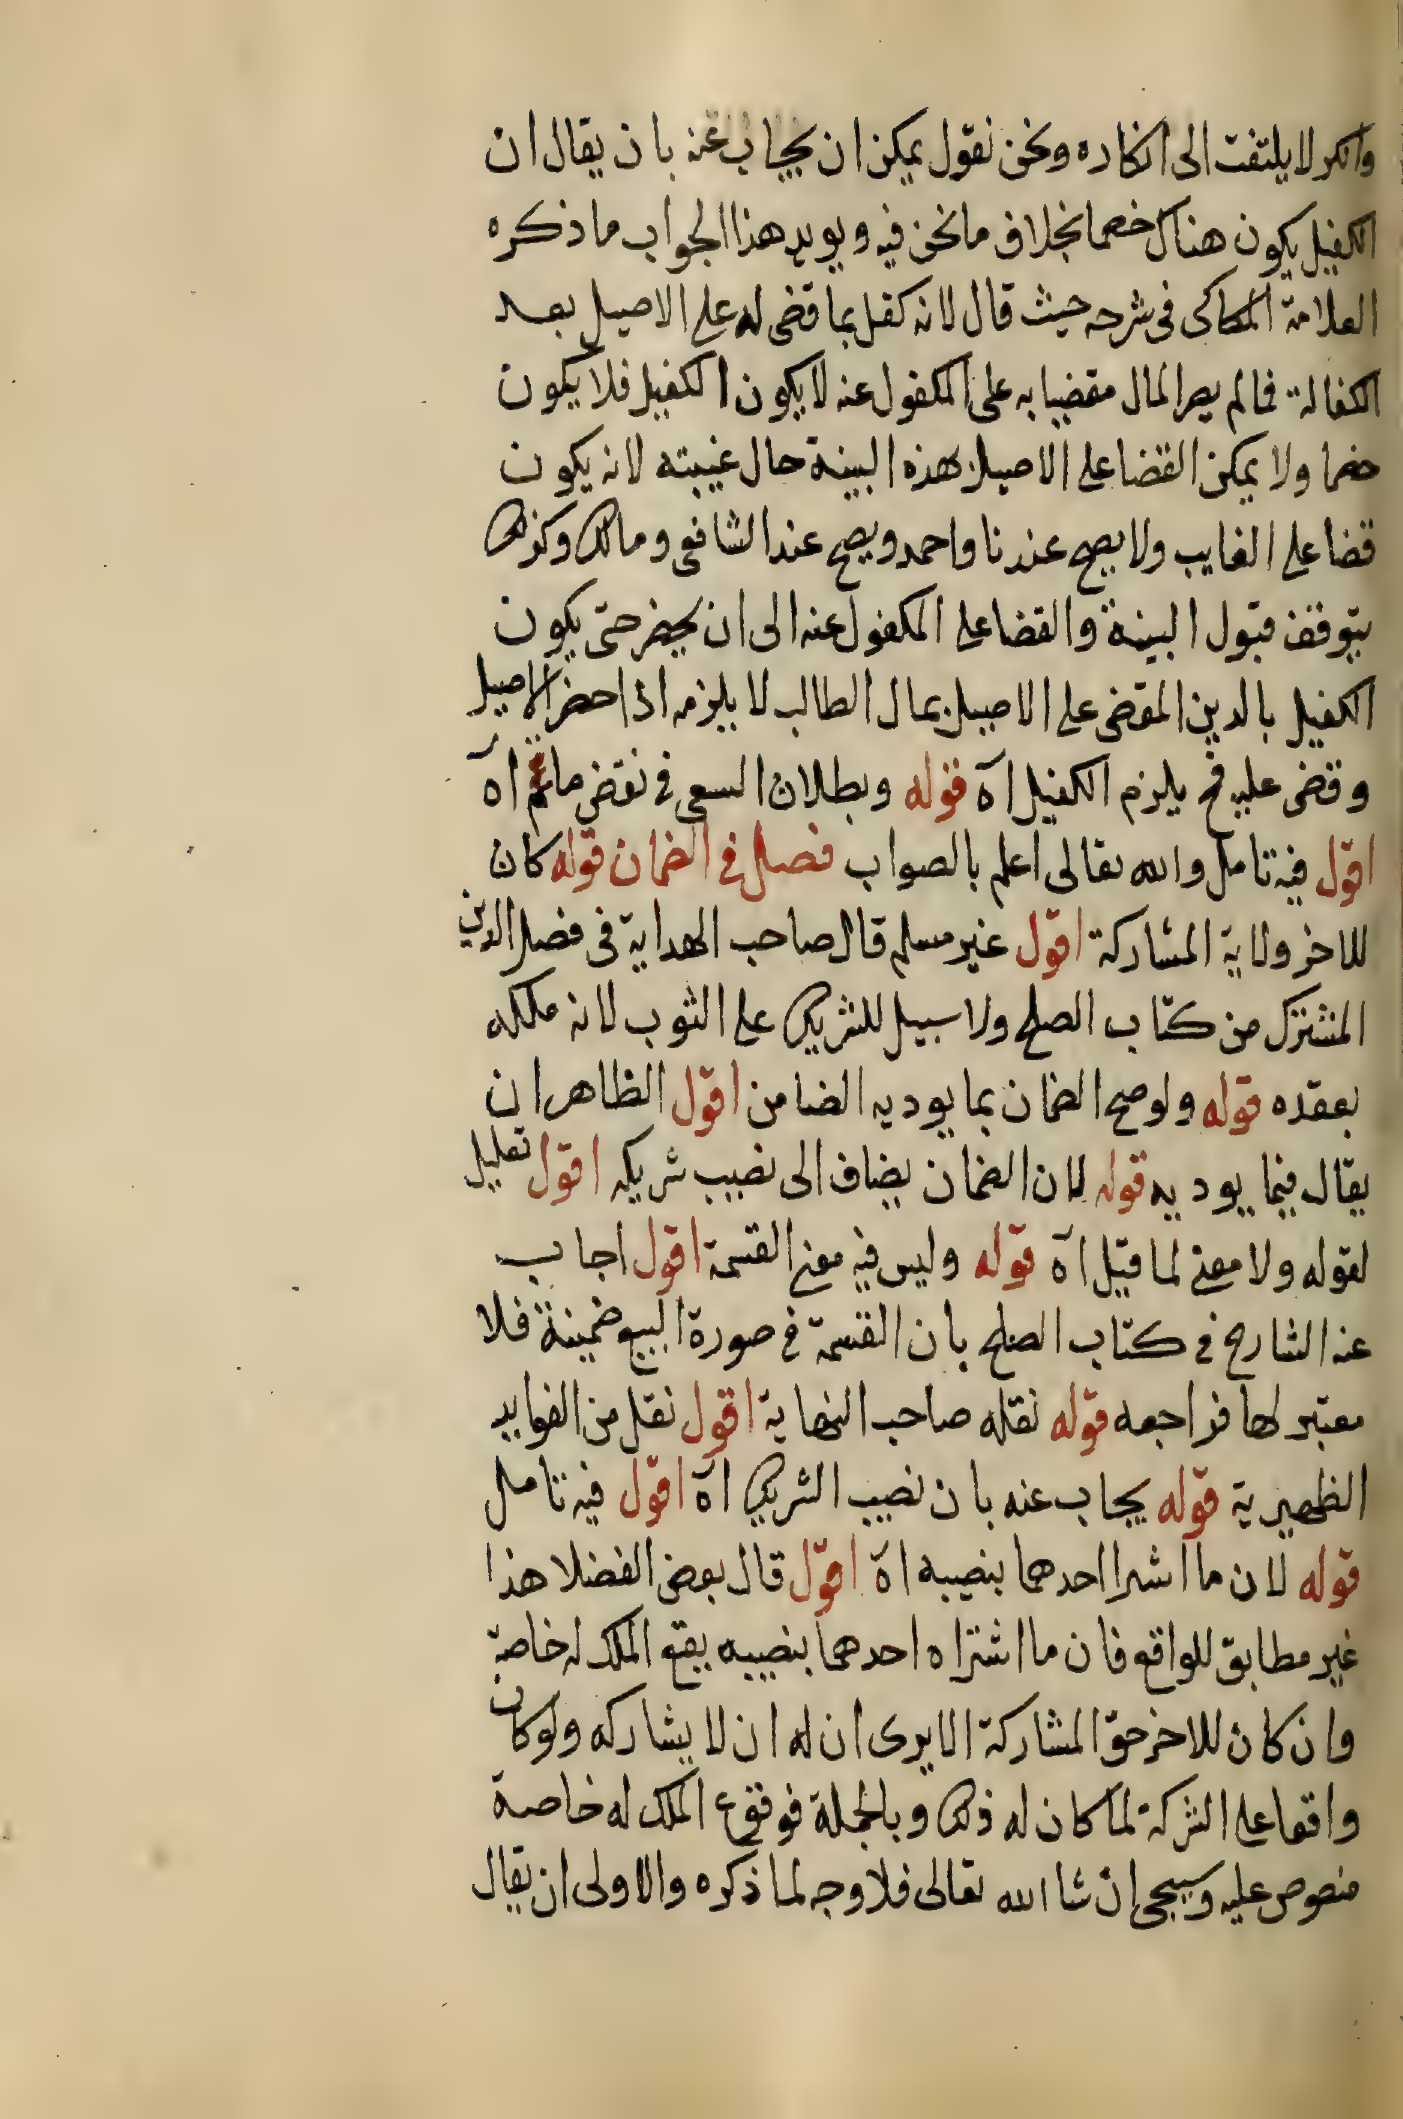 وانكر لا يلتفت الى انكاره ونحن نقول يمكن ان يجاب عنه بان يقال ان
الكفيل يكون هناك خصما بخلاف ما نحن فيه ويويد هذا الجواب ما ذكره
العلامة الكاكى فى شرحه حيث قال لانه كفل بما قضى له على الاصيل بعد
الكفالة فمالم يصر المال مقضيا به على المكفول عنه لا يكون الكفيل فلا يكون
خصما ولا يمكن القضا على الاصيل بهذه البينة حال غيبته لانه يكون
قضا على الغايب ولا يصح عندنا واحمد ويصح عند الشافعى ومالك وكذلك
يتوقف قبول البينة والقضا على المكفول عنه الى ان يحضر حتى يكون
الكفيل بالدين المقضى على الاصيل بمال الطالب لا يلزمه اذا حضر الاصيل
وقضى عليه فح يلزم الكفيل اه قوله وبطلان السعى فى نقض ما تم اه
اقول فيه تامل والله تعالى اعلم بالصواب فصل فى الضمان قوله كان
للاخر ولاية المشاركة اقول غير مسلم قال صاحب الهداية فى فصل الدين
المشترك من كتاب الصلح ولا سبيل للشريك على الثوب لانه ملكه
بعقده قوله ولو صح الضمان بما يوديه الضامن اقول الظاهر ان
يقال فيما يوديه قوله لان الضمان يضاف الى نصيب شريكه اقول تعليل
لقوله ولا معنى لما قيل اه قوله وليس فيه معنى القسمة اقول اجاب
عنه الشارح فى كتاب الصلح بان القسمة فى صورة البيع ضمينة فلا
معتبر لها فراجعه قوله نقله صاحب النهاية اقول نقل من الفوايد
الظهيرية قوله يجاب عنه بان نصيب الشريك اه اقول فيه تامل
قوله لان ما اشترا احدهما بنصيبه اه اقول قال بعض الفضلا هذا
غير مطابق للواقع فان ما اشتراه احدهما بنصيبه يقع الملك له خاصة
وان كان للاخر حق المشاركة الا يرى ان له ان لا يشاركه ولو كان
واقعا على الشركة لما كان له ذلك وبالجملة فوقوع الملك له خاصة
منصوص عليه وسيجى ان شا الله تعالى فلا وجه لما ذكره والاولى ان يقال